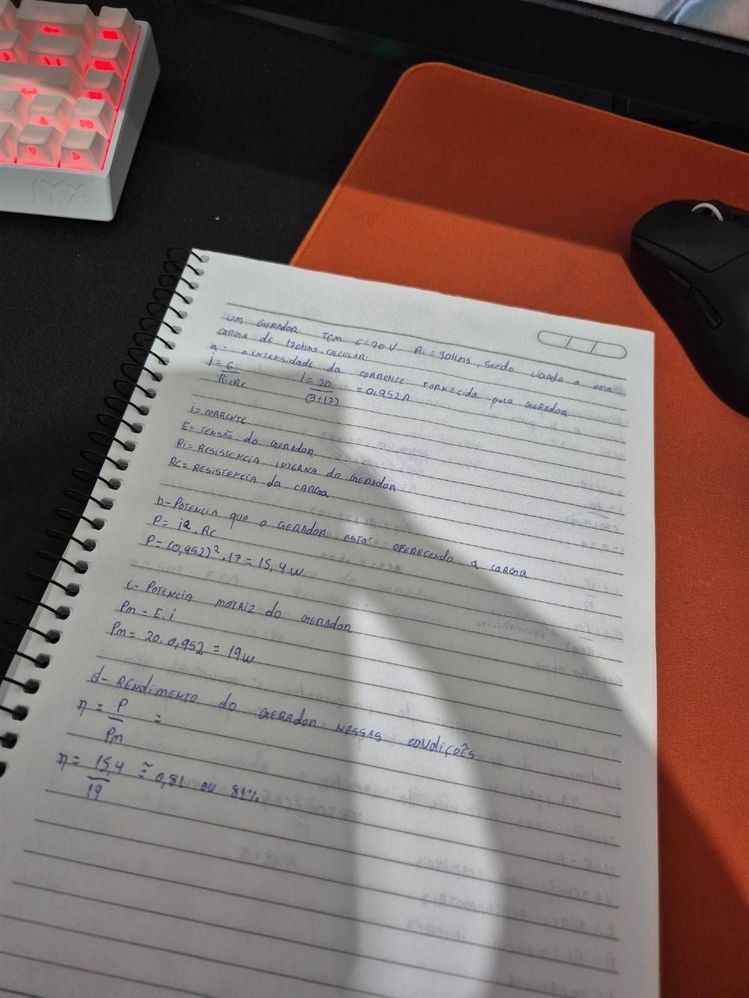 UM GERADOR TEM E=20V Ri=3Ohms, SENDO USADO A UMA
CARGA DE 17Ohms. CALCULAR:
a- A INTENSIDADE DA CORRENTE FORNECIDA PELO GERADOR
i=E/Ri+Rc i=20/(3+17) =0,952A
i=CORRENTE
E=TENSÃO DO GERADOR
Ri=RESISTENCIA INTERNA DO GERADOR
Rc=RESISTENCIA DA CARGA
b-POTENCIA QUE O GERADOR ESTA OFERECENDO A CARGA
P=i2.Rc
P=(0,952)².17=15,4W
C-POTENCIA MOTRIZ DO GERADOR
Pm=E.i
Pm=20.0,952=19W
d-RENDIMENTO DO GERADOR NESSAS CONDIÇOÊS
η=P/Pm =
η=15,4/19 ≅0,81 OU 81%